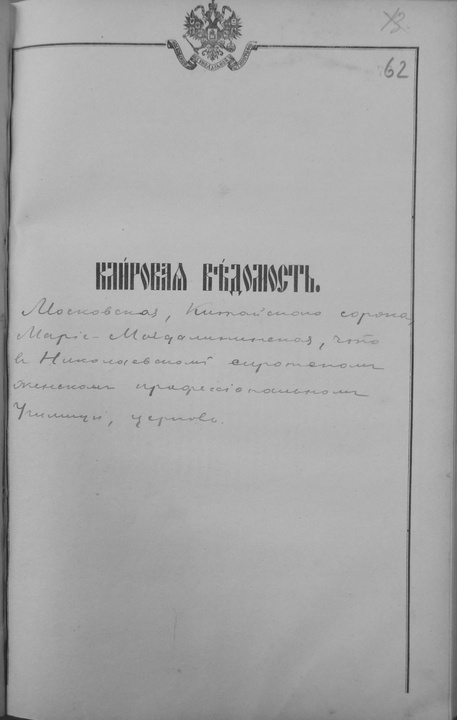 62
КЛИРОВАЯ ВѢДОМОСТЬ.
Московская, Китайскаго сорока,
Маріе-Магдалининская, что
въ Николаевскомъ сиротскомъ
женскомъ профессіональномъ
Училищѣ, церковь.